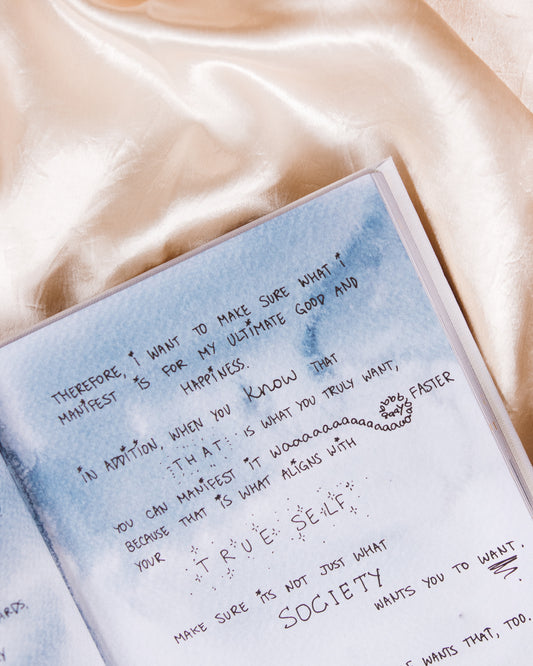 THEREFORE, i WANT TO MAKE SURE WHAT i
MANiFEST iS FOR MY ULTiMATE GOOD AND
HAPPiNESS.
iN ADDiTiON, WHEN YOU KNOW THAT
THAT iS WHAT YOU TRULY WANT,
YOU CAN MANiFEST iT Waaaaaaaaaaaaaaaaay FASTER
BECAUSE THAT iS WHAT ALiGNS WiTH
YOUR TRUE SELF.
MAKE SURE iTS NOT JUST WHAT
SOCIETY
WANTS YOU TO WANT.
WANTS THAT, TOO.
ARDS.